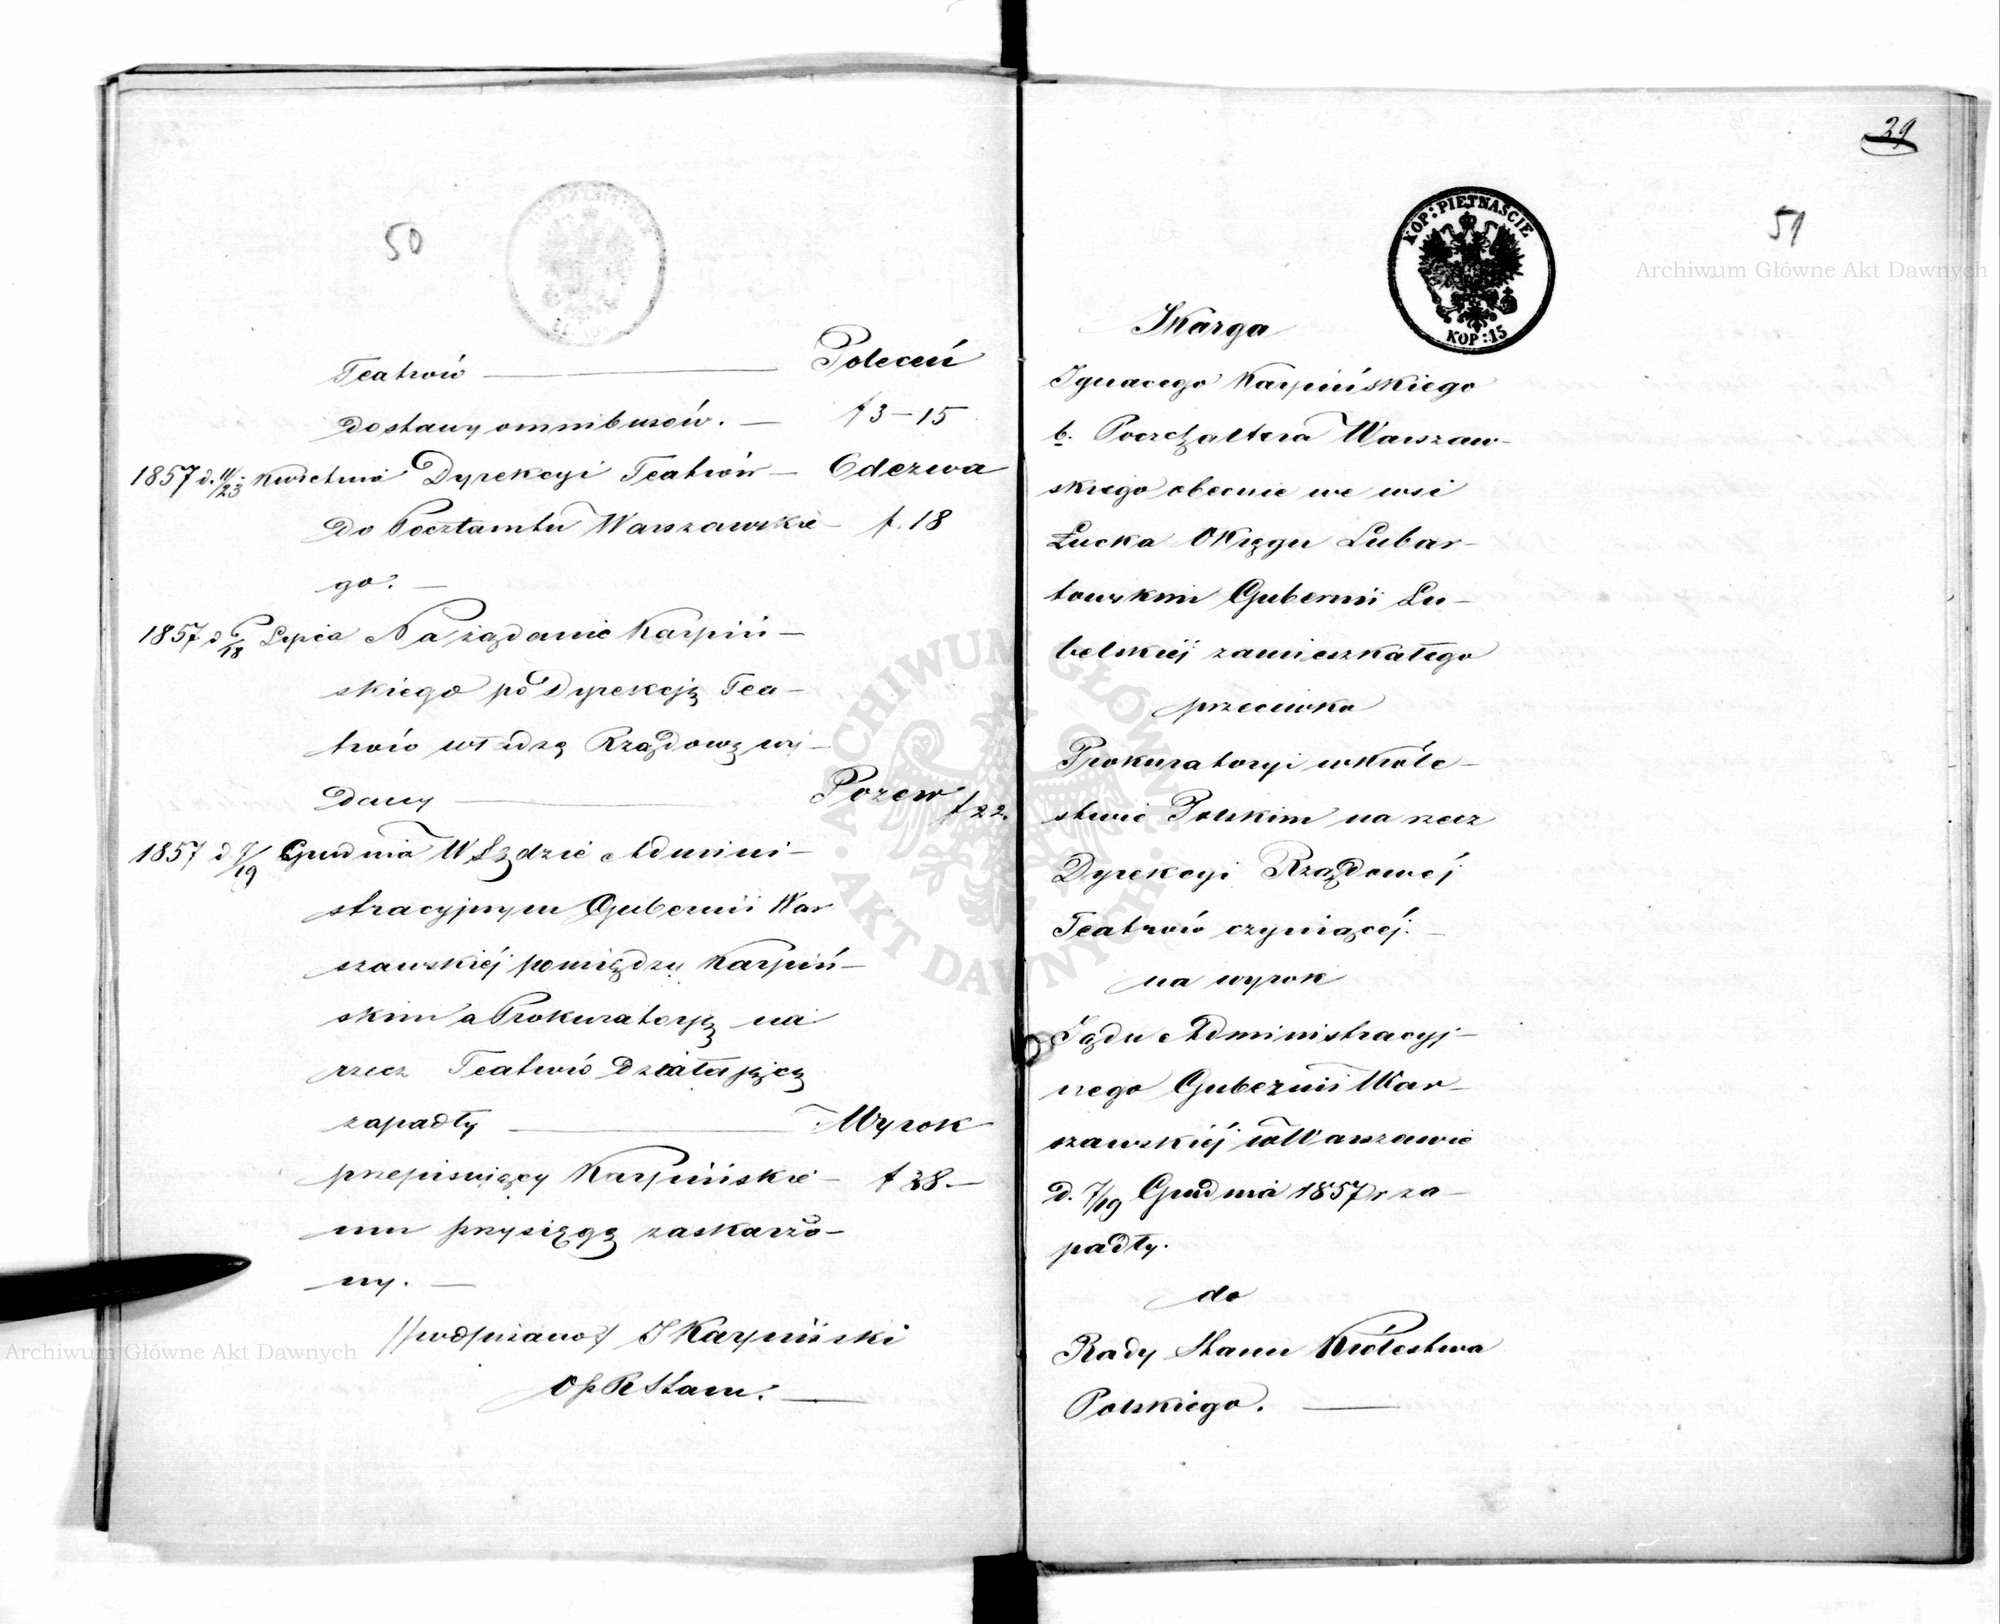 50
Teatrów — Poleceń
Dostawy omnibusów. — f 3–15
1857 d. 11/23 Kwietnia Dyrekcyi Teatrów — Odezwa
do Pocztamtu Warszawskie- f. 18
go. —
1857 d 6/18 Lipca Na żądanie Karpiń-
skiego po Dyrekcją Tea-
trów władzę Rządową wy-
dany — Pozew f 22.
1857 d 7/19 Grudnia W Sądzie Admini-
stracyjnym Gubernii War
szawskiéj pomiędzy Karpiń-
skim a Prokuratoryą na
rzecz Teatrów działającą
zapadły — Wyrok
przepisujący Karpińskie- f 28.—
mu przysięgę zaskarżo-
ny. —
(podpisano) I Karpiński
Op R Stanu. —
29
51
KOP: PIĘTNAŚCIE
KOP: 15
Skarga
Ignacego Karpińskiego
b. Poczthaltera Warszaw-
skiego obecnie we wsi
Łucka Okręgu Lubar-
towskim Gubernii Lu-
belskiéj zamieszkałego
przeciwko
Prokuratoryi w Króle-
stwie Polskim na rzecz
Dyrekcyi Rządowéj
Teatrów czyniącéj. —
na wyrok
Sądu Administracyj-
nego Gubernii War-
szawskiéj w Warszawie
d. 7/19 Grudnia 1857 r za-
padły.
do
Rady Stanu Królestwa
Polskiego. —
Archiwum Główne Akt Dawnych
Archiwum Główne Akt Dawnych
ARCHIWUM GŁÓWNE · AKT DAWNYCH ·